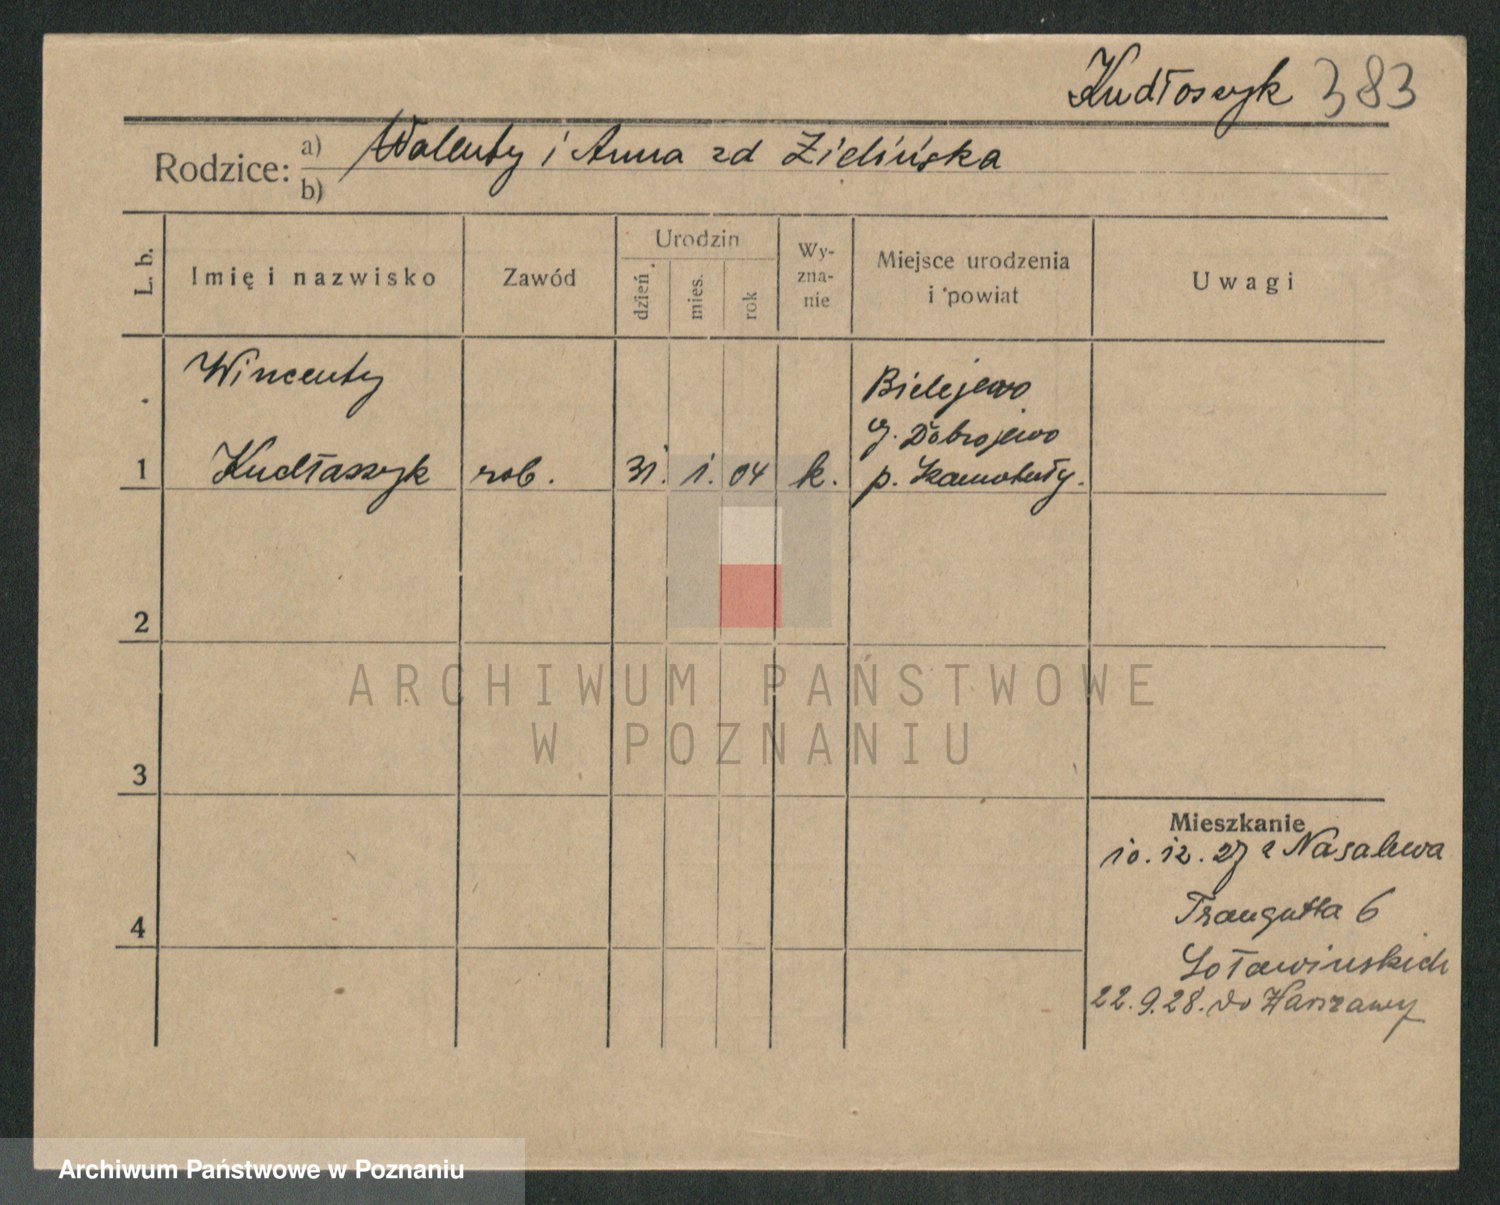 Kudłoszyk 383
Rodzice: a) Walenty i Anna zd Zielińska
b)
L. b. Imię i nazwisko Zawód Urodzin dzień mies. rok Wy-zna-nie Miejsce urodzenia i powiat Uwagi
Wincenty Bielejewo
g. Dobrojewo
1 Kudłaszyk rob. 31. 1. 04 k. p. Szamotuły.
2
3
4
Mieszkanie
10. 12. 27 z Nasalewa
Traugutta 6
22. 9. 28. do Warszawy
ARCHIWUM PAŃSTWOWE
W POZNANIU
Archiwum Państwowe w Poznaniu